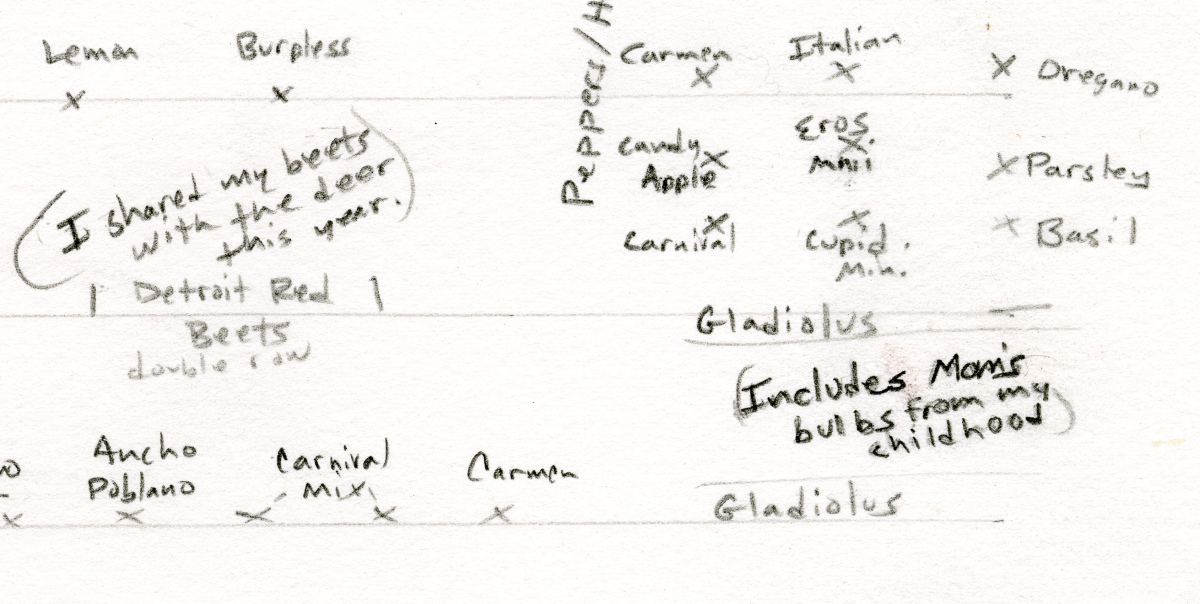 Lemon Burpless
Peppers/H
Carmen Italian
Oregano
Candy
Apple
Eros
Mini
Parsley
Carnival
Cupid.
Min.
Basil
(I shared my beets
with the deer
this year.)
Detroit Red
Beets
double row
Gladiolus
(Includes Mom's
bulbs from my
childhood)
Ancho
Poblano
Carnival
Mix
Carmen
Gladiolus